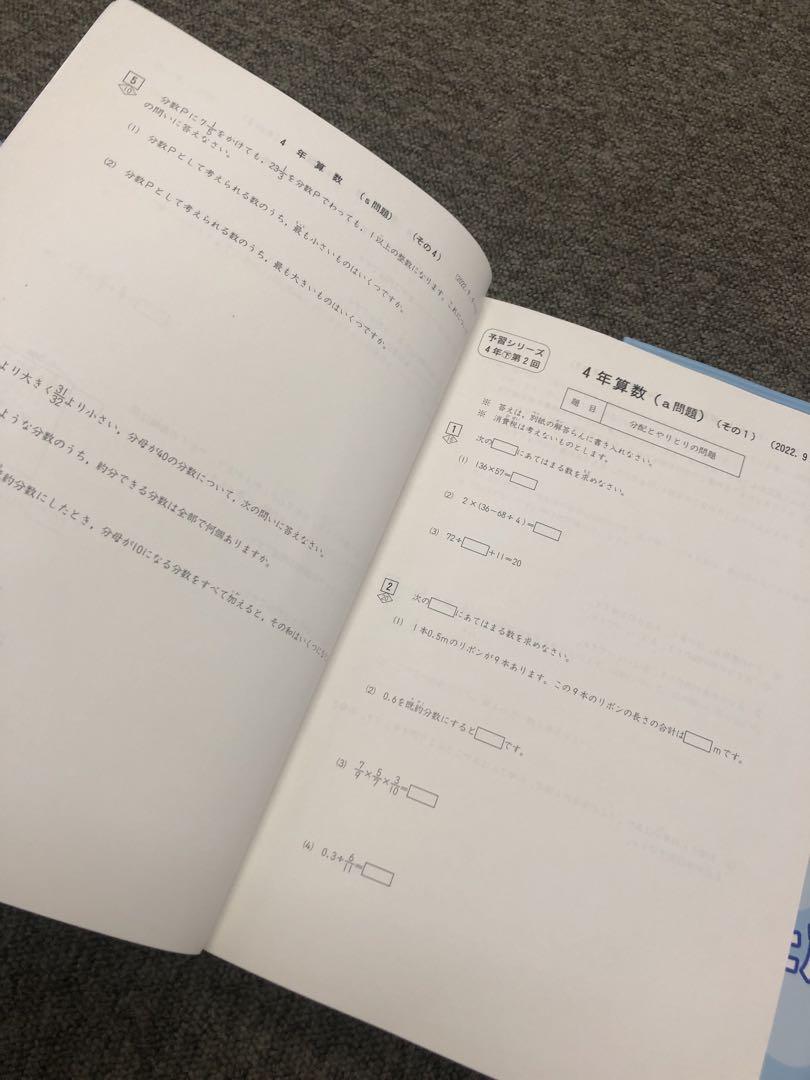 4 年 算 数 (a問題) (その4) (2022. 9
5
10
分数Pに7 1/5 をかけても,23 1/3 を分数Pでわっても,1以上の整数になります。これに
の問いに答えなさい。
(1) 分数Pとして考えられる数のうち,最も小さいものはいくつですか。
(2) 分数Pとして考えられる数のうち,最も大きいものはいくつですか。
より大きく 31/32 より小さい,分母が40の分数について,次の問いに答えなさい。
ような分数のうち,約分できる分数は全部で何個ありますか。
約分数にしたとき,分母が10になる分数をすべて加えると,その和はいくつに
予習シリーズ
4年下第2回
4年算数(a問題)(その1) (2022. 9
題 目 分配とやりとりの問題
※ 答えは,別紙の解答らんに書き入れなさい。
※ 消費税は考えないものとします。
1
次の□にあてはまる数を求めなさい。
(1) 136×57=□
(2) 2×(36-68÷4)=□
(3) 72÷□+11=20
2
次の□にあてはまる数を求めなさい。
(1) 1本0.5mのリボンが9本あります。この9本のリボンの長さの合計は□mです。
(2) 0.6を既約分数にすると□です。
(3) 7/9×5/7×3/10=□
(4) 0.3÷6/11=□